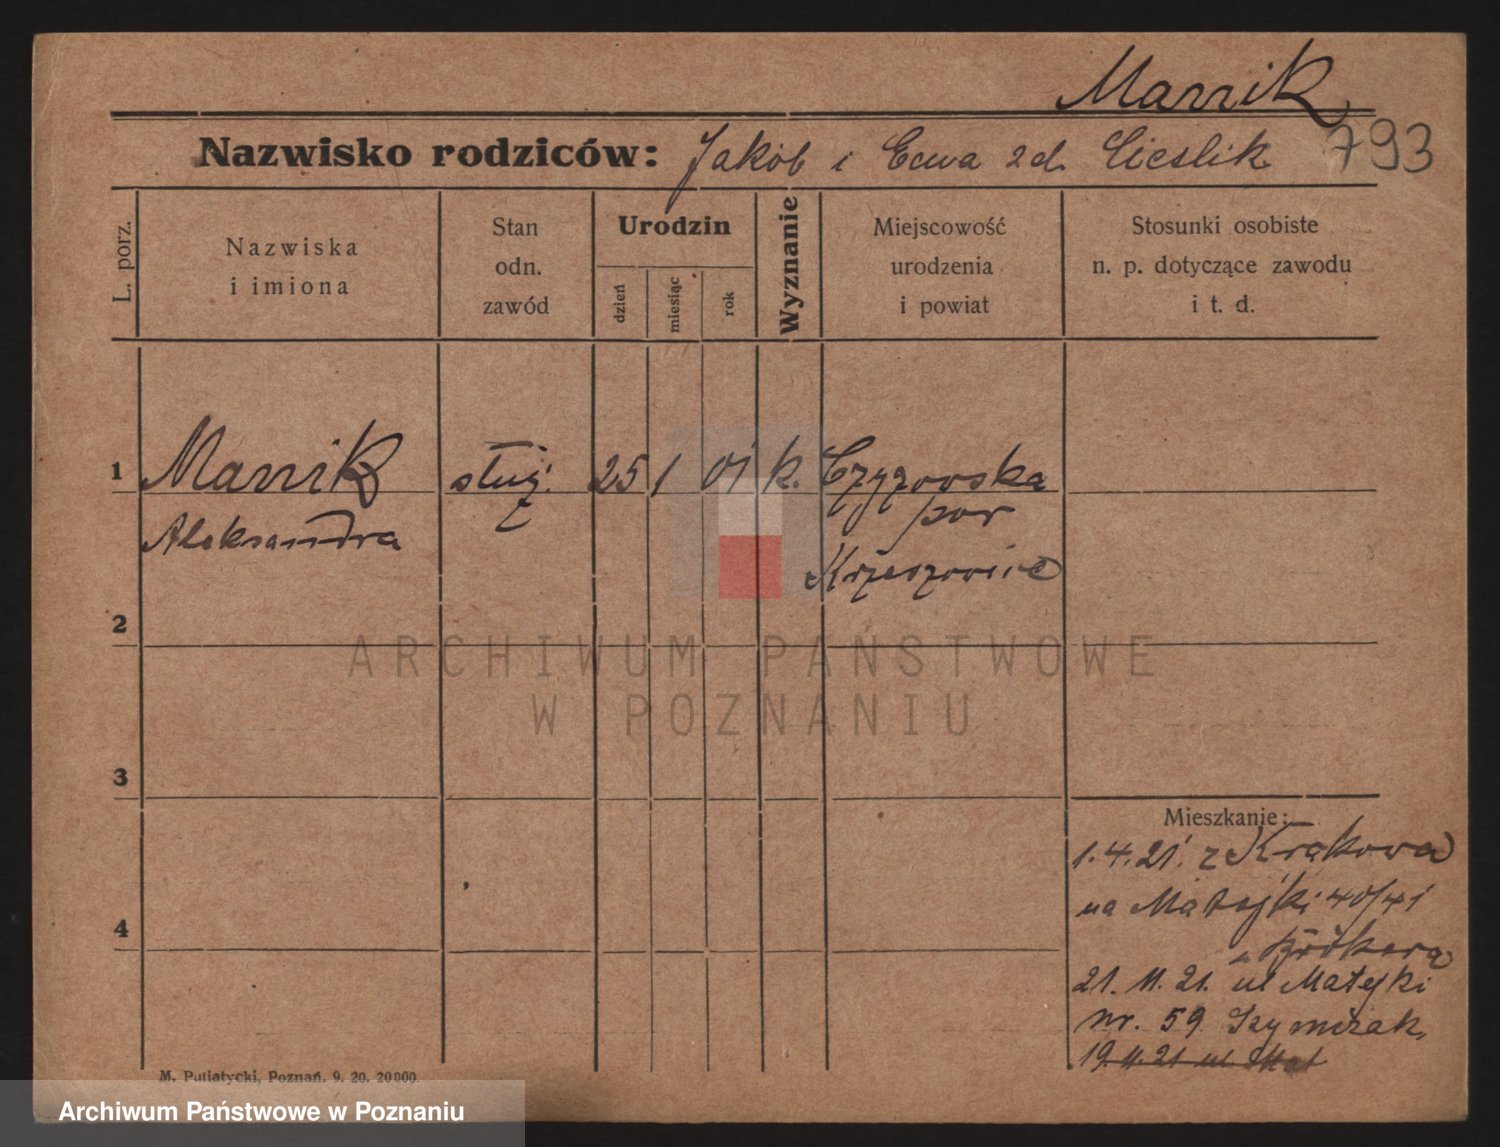 Marzik
Nazwisko rodziców: Jakób i Ewa zd. Cieślik 793
L. porz.
Nazwiska
i imiona
Stan
odn.
zawód
Urodzin
dzień
miesiąc
rok
Wyznanie
Miejscowość
urodzenia
i powiat
Stosunki osobiste
n. p. dotyczące zawodu
i t. d.
1 służ. 25 1 01 k.
Aleksandra
Krzeszowice
2
ARCHIWUM PAŃSTWOWE
W POZNANIU
3
4
Mieszkanie:
1.4.21. z Krakowa
na Matejki 40/41
21. 11. 21. ul Matejki
nr. 59 Szymczak
19.11.21 ul Mat
M. Putiatycki, Poznań. 9. 20. 20000.
Archiwum Państwowe w Poznaniu